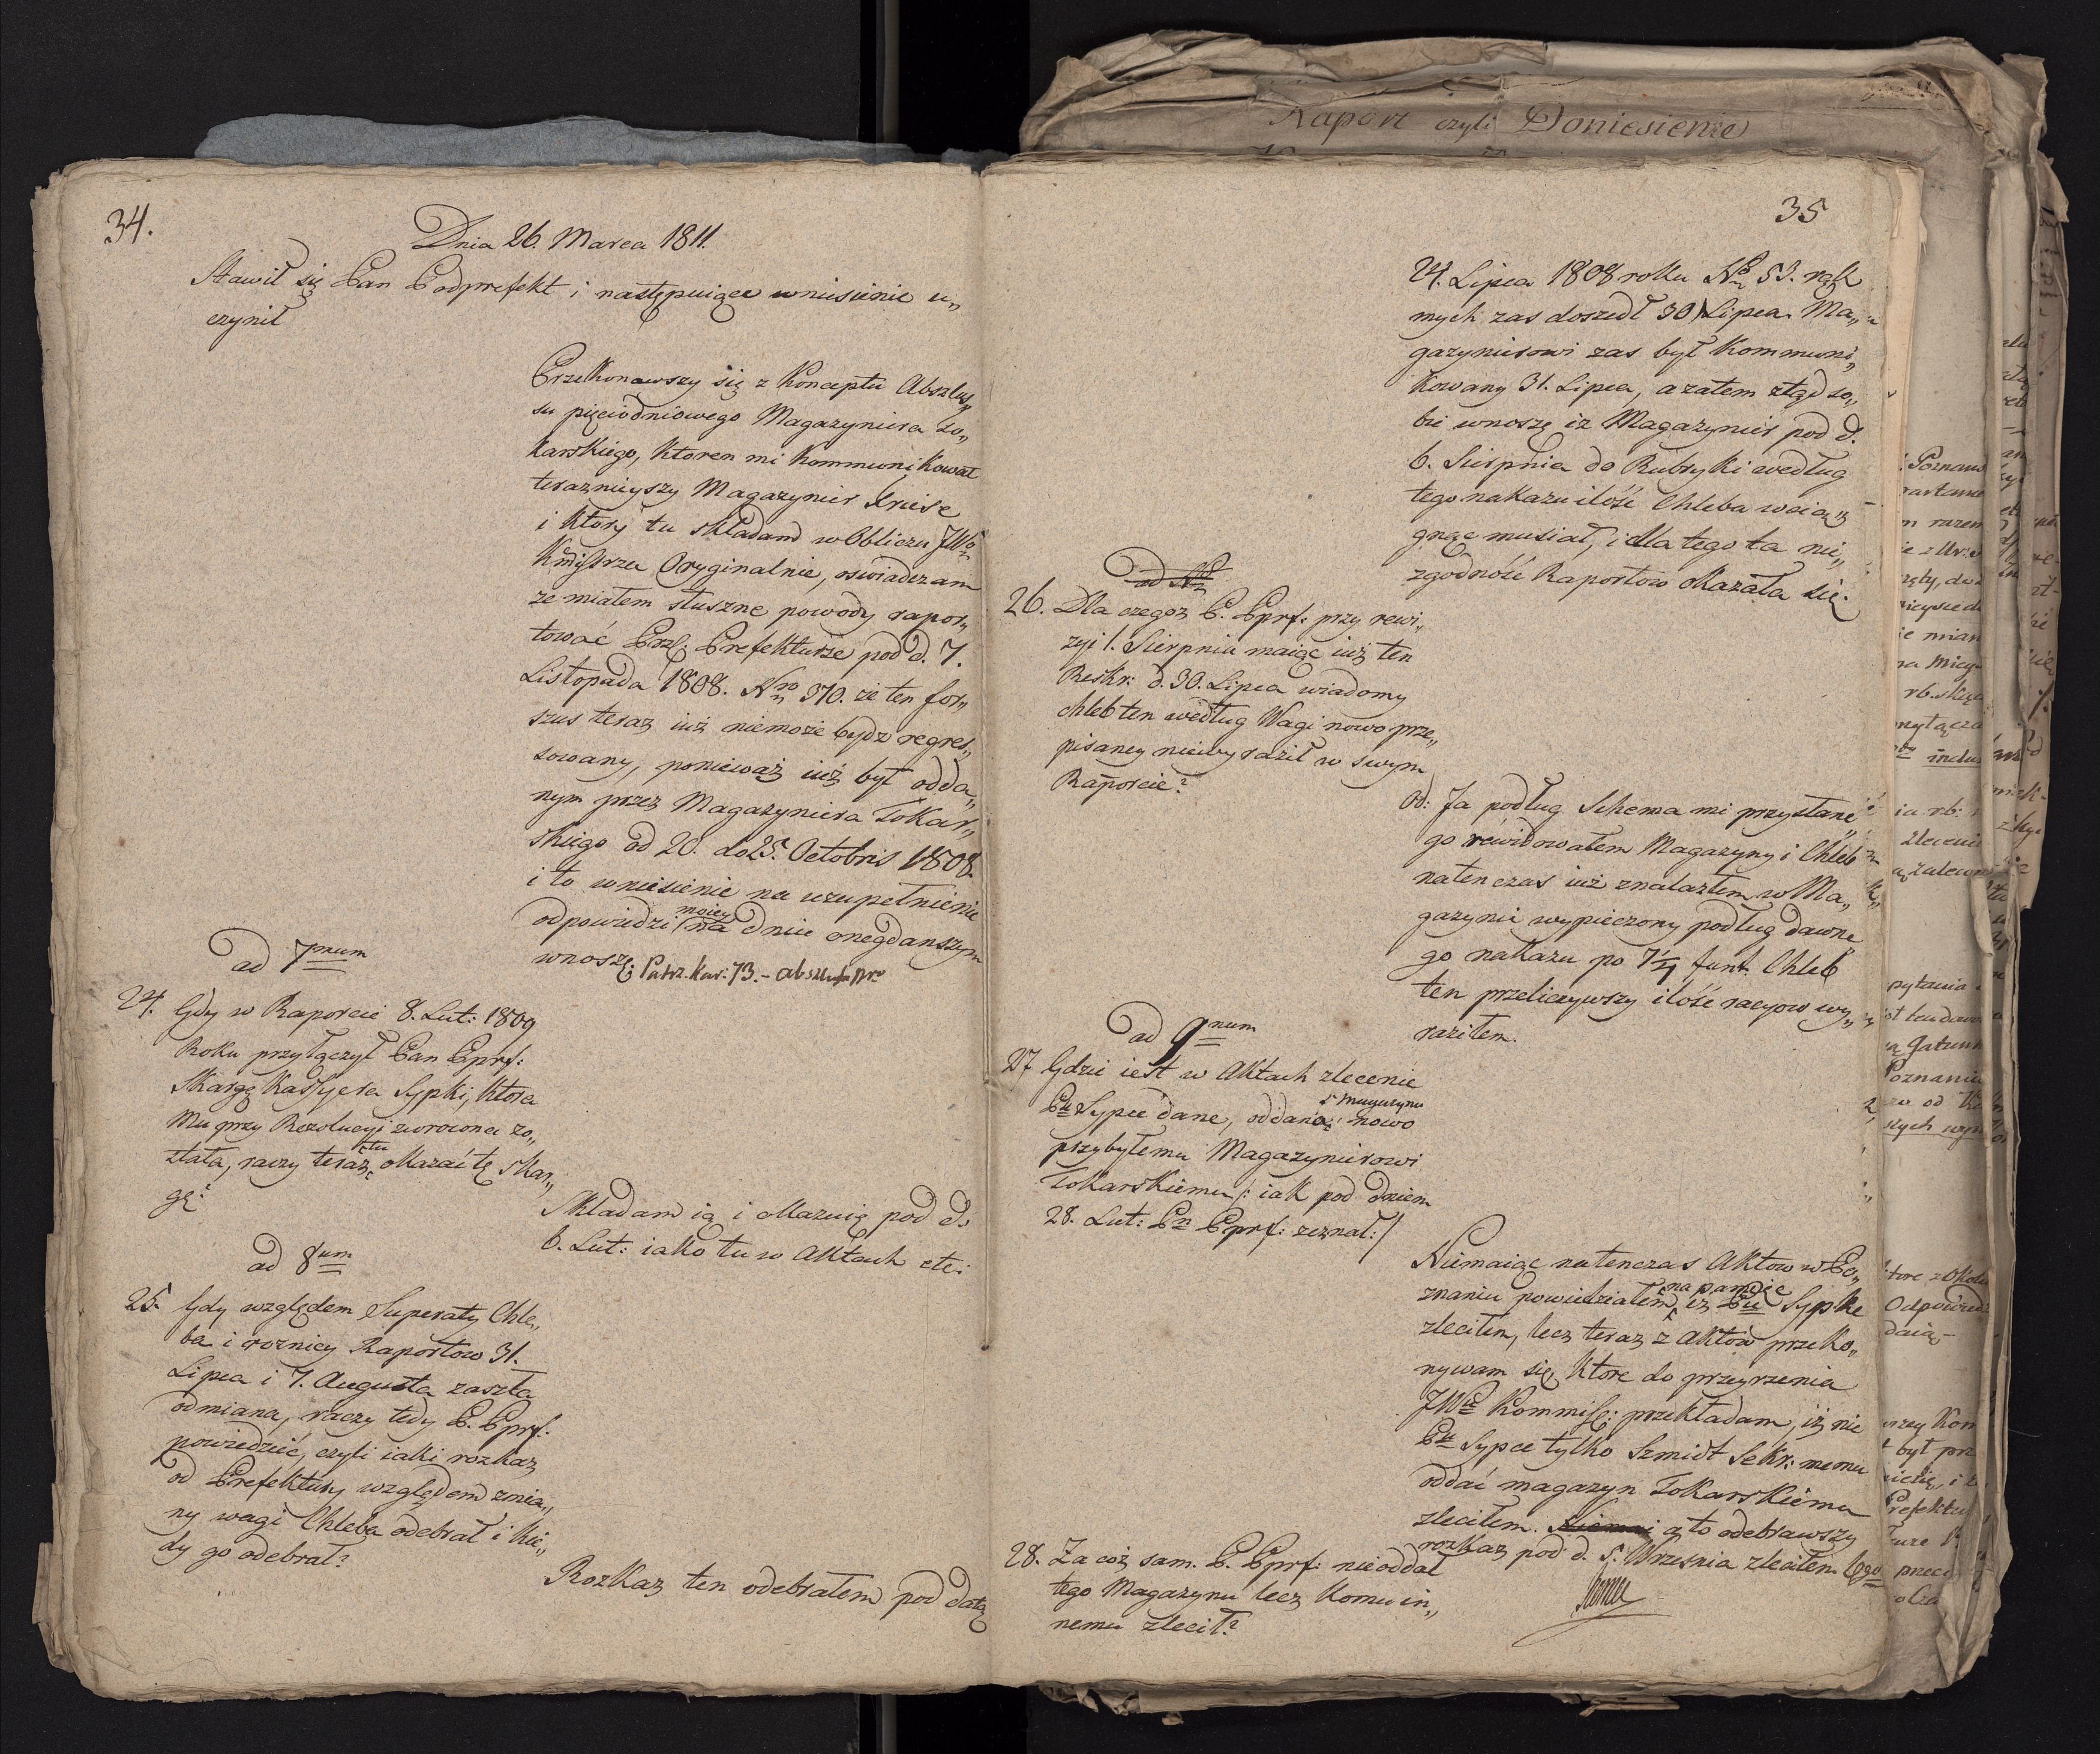 34.
Dnia 26. Marca 1811.
Stawił się Pan Podprefekt i następuiące wniesienie u„
czynił
Przekonawszy się z Konceptu Abszlus„
su pięciodniowego Magazyniera To„
karskiego, ktoren mi kommunikował
teraznieyszy Magazynier Kriese
i ktory tu składam w Obliczu JWo
Kmissrza Oryginalnie, oswiadczam
ze miałem słuszne powody rapor„
tować Prz: Prefekturze pod d. 7.
Listopada 1808. Nro 370. że ten for„
szus teraz iuż niemoże bydz regres„
sowany, ponieważ iuż był odda„
nym przez Magazyniera Tokar„
skiego od 20. do 25. Octobris 1808.
i to wniesienie na uzupełnienie
moiey
odpowiedzi na dniu onegdanszym
wnoszę. Patrz. kar: 73. - abszlut pro
ad 7mum
24. Gdy w Raporcie 8. Lut: 1809
Roku przyłączył Pan Pprf:
Skargę Kassyera Sypki, ktora
Mu przy Rezolucyi zwrocona zo„
tu
stała, raczy teraz okazać tę Skar„
gę?
Składam ią i okazuię pod d.
6. Lut: iako tu w Aktach etc:
ad 8um
25. Gdy względem Superaty Chle„
ba i roznicy Raportow 31.
Lipca i 7. Augusta zaszła
odmiana, raczy tedy P. Pprf.
powiedzieć, czyli iaki rozkaz
od Prefektury względem zmia„
ny wagi Chleba odebrał i kie„
dy go odebrał?
Rozkaz ten odebrałem pod datą
35
24. Lipca 1808 roku No 53. rąk
mych zas doszedł 30 Lipca. Ma„
gazynierowi zas był kommuni„
kowany 31. Lipca, a zatem ztąd so„
bie wnoszę iz Magazynier pod d.
6. Sierpnia do Rubryki według
tego nakazu ilość Chleba wcią„
gnąc musiał, i dla tego ta nie„
zgodność Raportow okazała się.
ad No
26. Dla czegoz P. Pprf: przy rewi„
zyi 1. Sierpnia maiąc iuż ten
Reskr: d. 30. Lipca wiadomy
chleb ten według Wagi nowo prze„
pisaney niewyraził w swym
Raporcie?
Od: Ja podług Schema mi przysłane„
go rewidowałem Magazyny i Chleb
natenczas iuż znalazłem w Ma„
gazynie wypieczony podług dawne„
go nakazu po 7¼ funt. Chleb
ten przeliczywszy ilość racyow wy„
raziłem.
ad 9num
27 Gdzie iest w Aktach zlecenie
Magazynu
Pu Sypce dane, oddania nowo
przybyłemu Magazynierowi
Tokarskiemu /: iak pod dniem
28. Lut: Pn Pprf: zeznał:/
Niemaiąc natenczas Aktow w Po„
na pamięc
znaniu powiedziałem iz Pu Sypke
zleciłem, lecz teraz z Aktow przeko„
nywam się, ktore do przeyrzenia
JWu Kommiss: przekładam, iż nie
Pu Sypce tylko Szmidt Sekr: memu
oddać magazyn Tokarskiemu
zleciłem. a to odebrawszy
rozkaz pod d. 5. Wrzesnia zleciłem 6go
28. Za coż sam. P. Pprf: nieoddał
tego Magazynu lecz komu in„
nemu zlecił?
Raport czyli Doniesienie